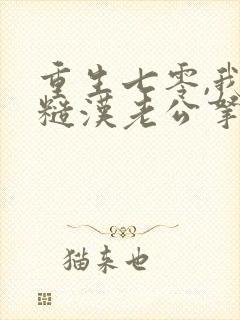 重生七零,我
糙漢老公寧
猫来也